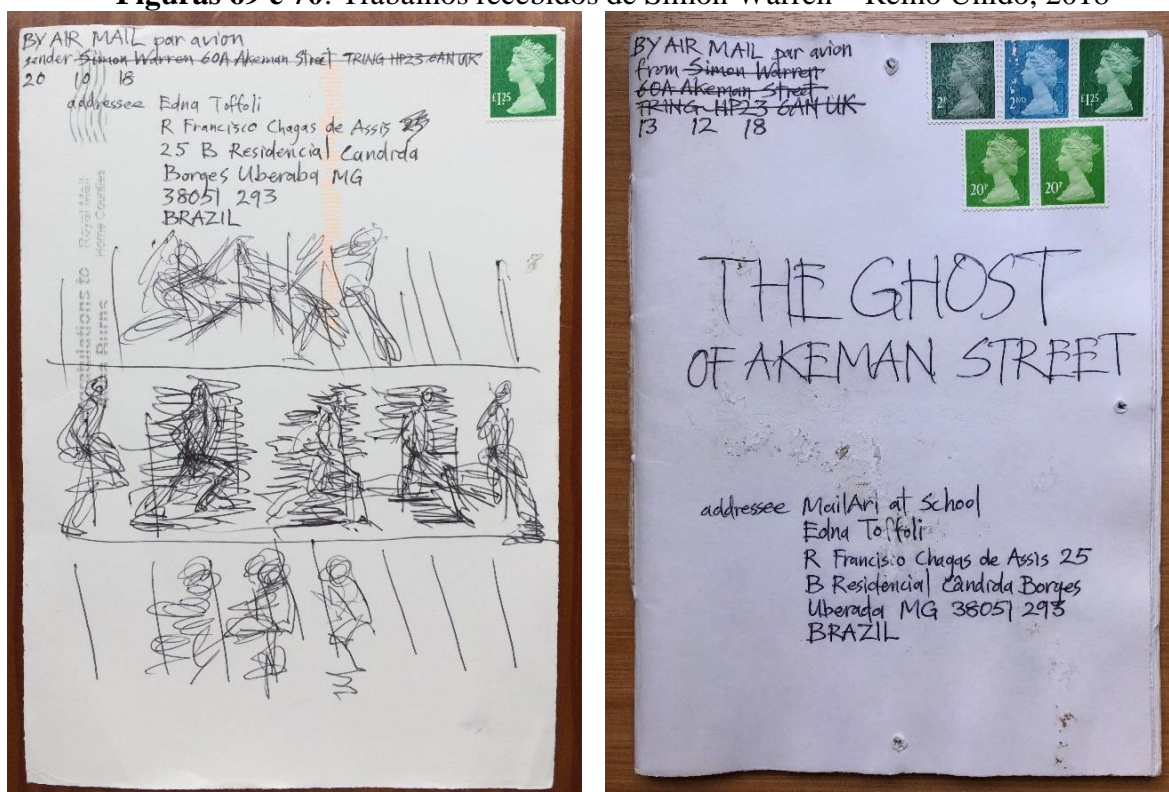 Figuras 69 e 70: Trabalhos recebidos de Simon Warren – Reino Unido, 2018
BY AIR MAIL par avion
sender Simon Warren 60A Akeman Street TRING HP23 6AN UK
20 10 18
£1.25
addressee Edna Toffoli
R Francisco Chagas de Assis
25 B Residencial Candida
Borges Uberaba MG
38051 293
BRAZIL
Royal Mail
Home Counties
to
Burns
BY AIR MAIL par avion
from Simon Warren
60A Akeman Street
TRING HP23 6AN UK
13 12 18
2ND
20P
20P
THE GHOST
OF AKEMAN STREET
addressee MailArt at School
Edna Toffoli
R Francisco Chagas de Assis 25
B Residencial Cândida Borges
Uberada MG 38051 293
BRAZIL